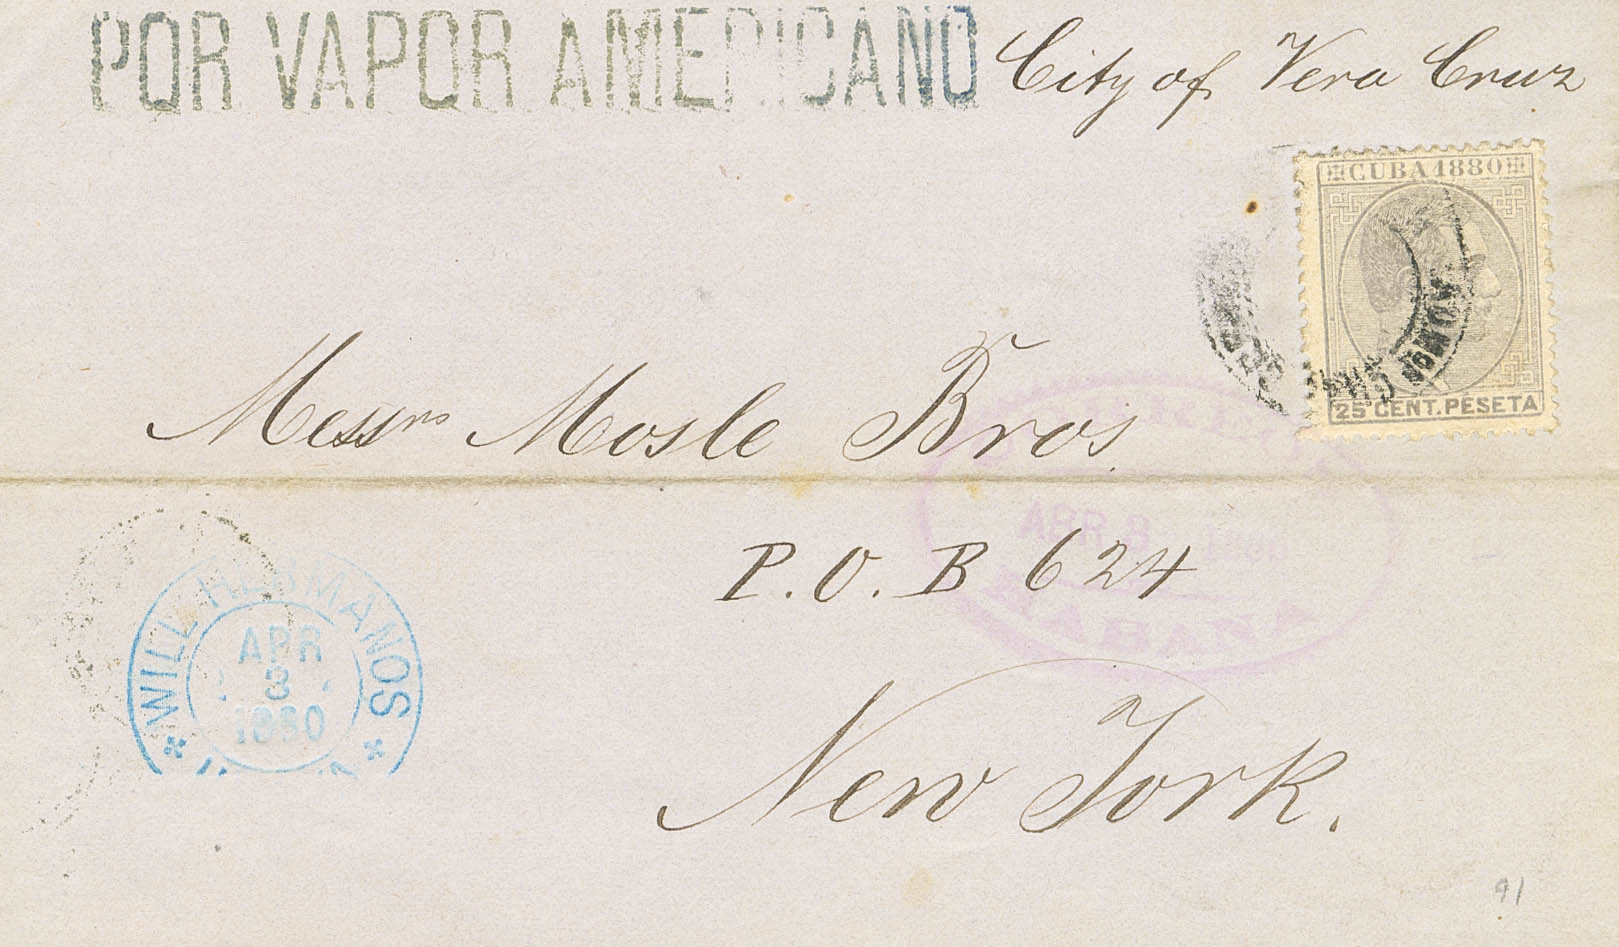 POR VAPOR AMERICANO City of Vera Cruz
CUBA 1880
25 CENT. PESETA
Messrs Mosle Bros.
ABR 8
HABANA
P. O. B 624
WILL HERMANOS
APR
3
1880
New York.
91